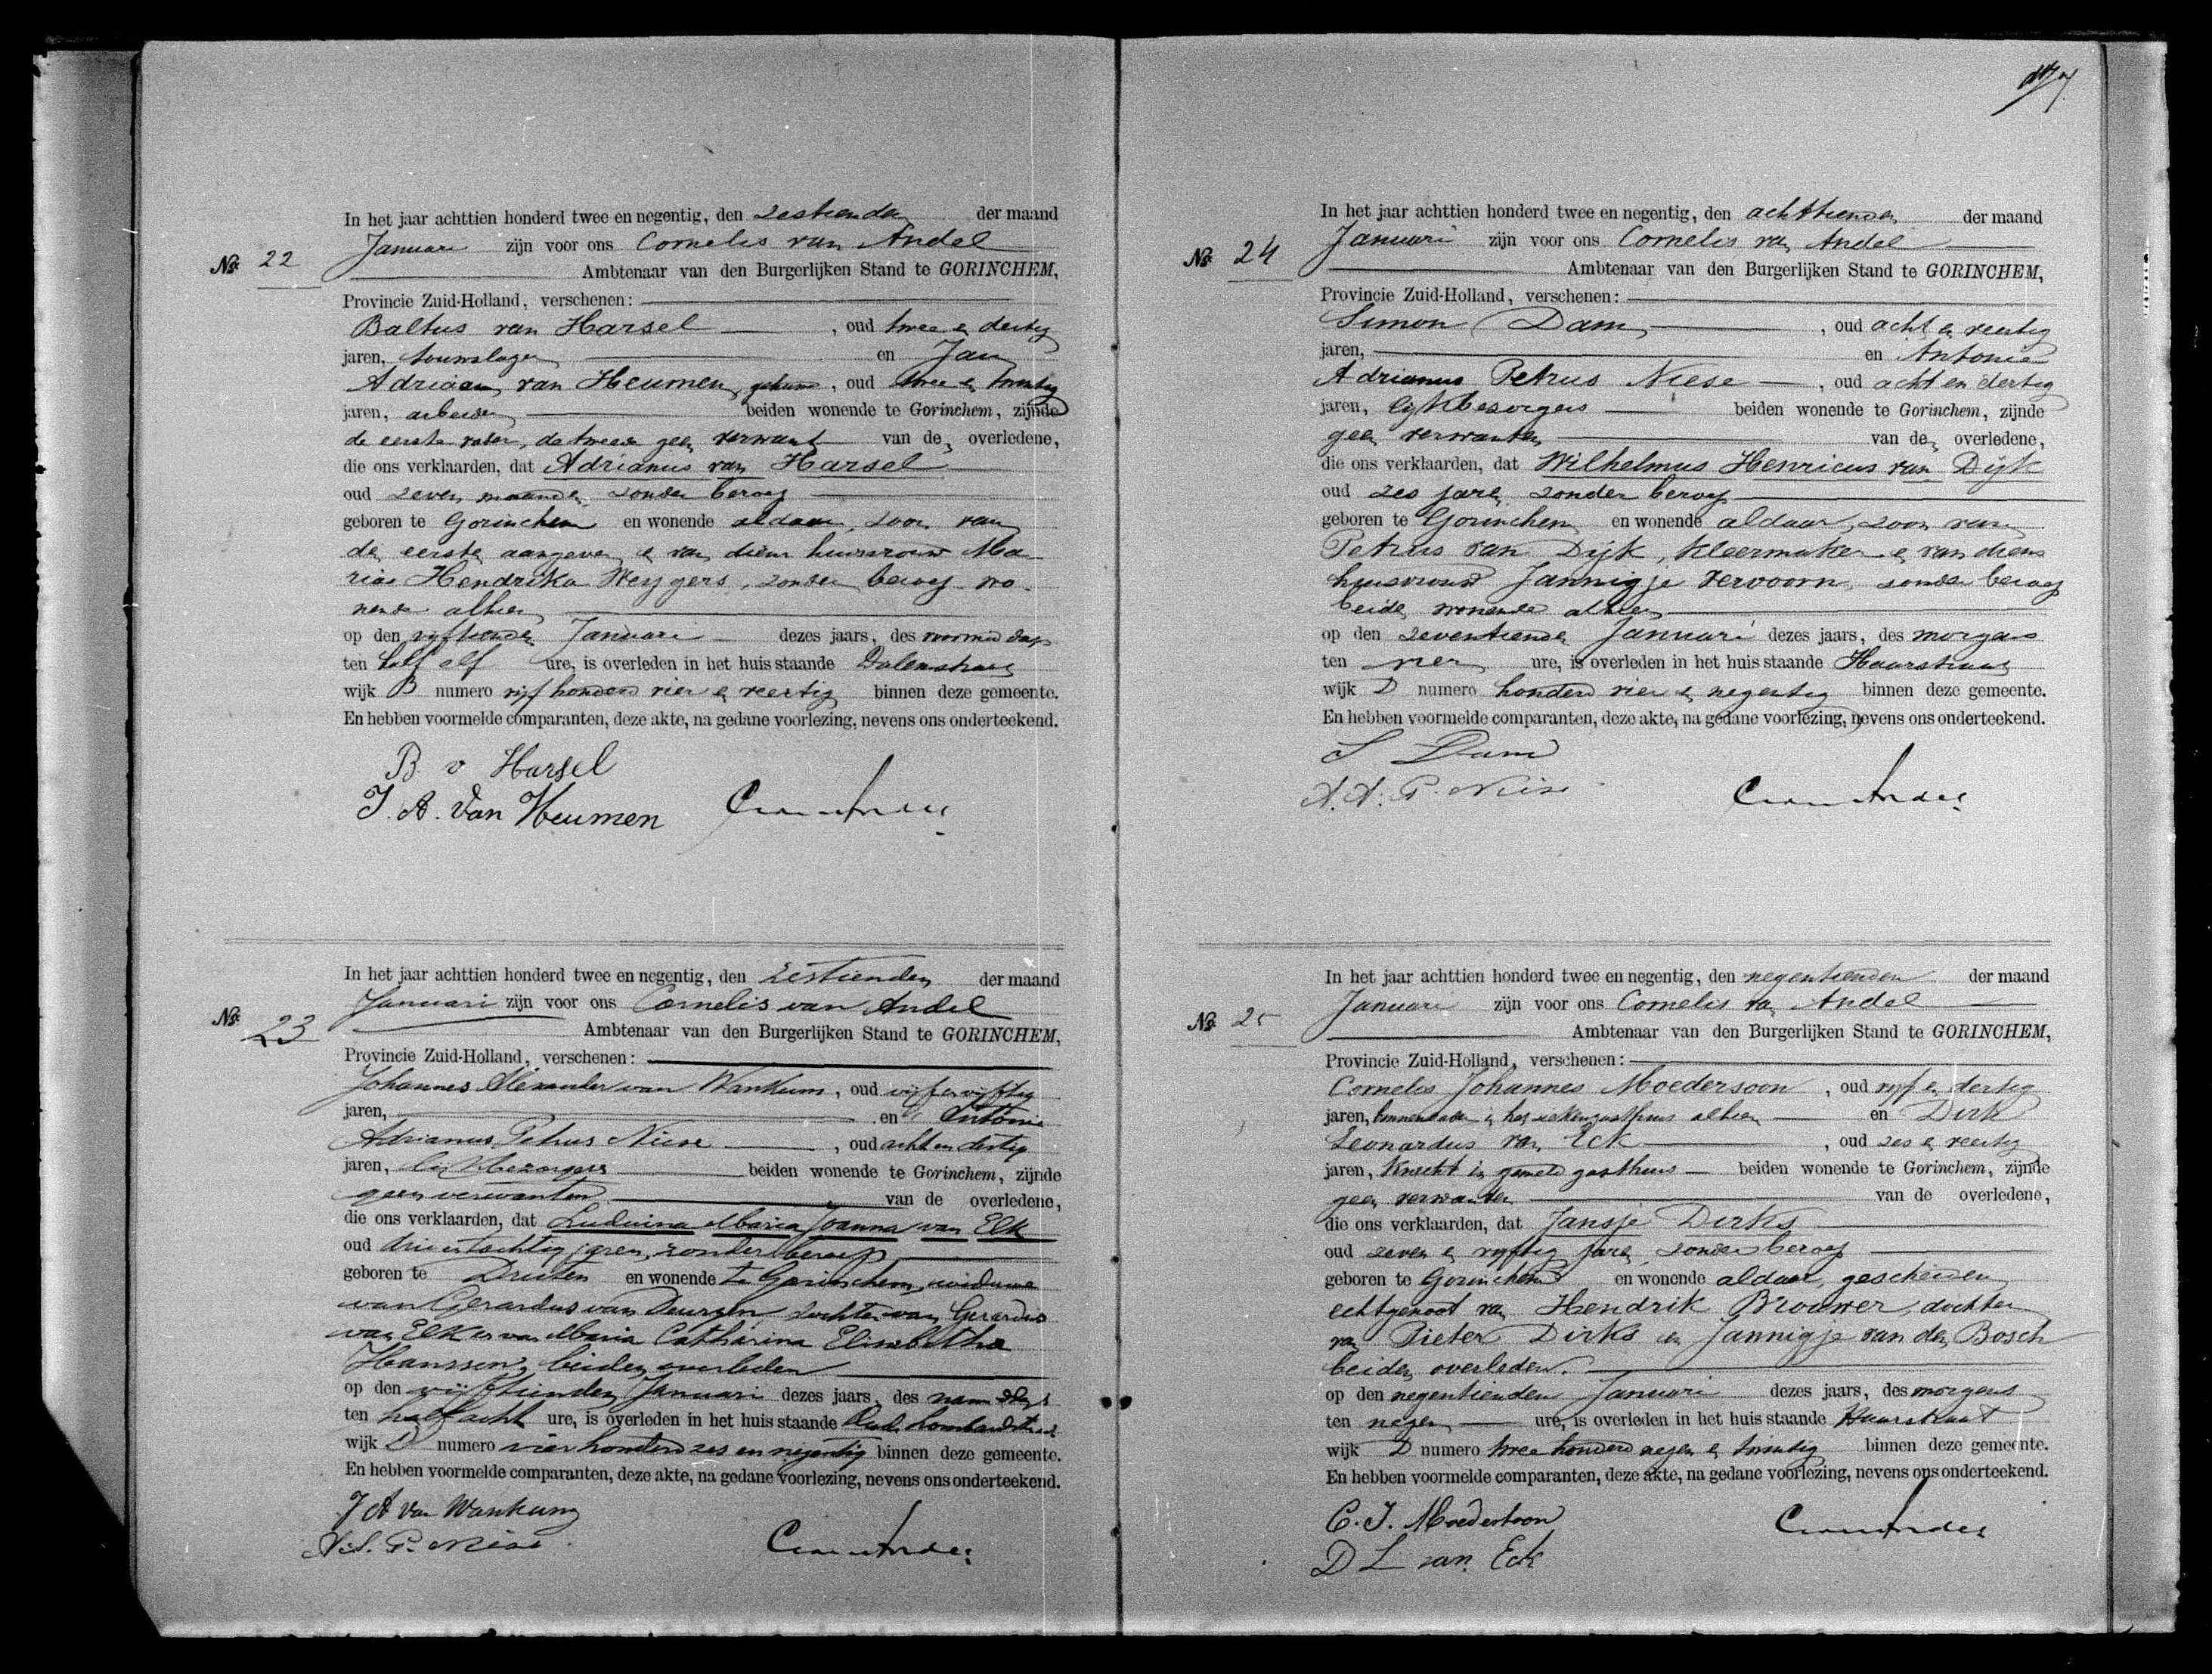 In het jaar achttien honderd twee en negentig, den zestienden der maand
Januari zijn voor ons Cornelis van Andel
No. 22
Ambtenaar van den Burgerlijken Stand te GORINCHEM,
Provincie Zuid-Holland, verschenen:
Baltus van Harsel, oud twee en dertig
jaren, touwslager en Jan
Adriaan van Heumen, oud twee en twintig
jaren, arbeider beiden wonende te Gorinchem, zijnde
de eerste vader, de tweede geen verwant van de overledene,
die ons verklaarden, dat Adrianus van Harsel
oud zeven maanden zonder beroep
geboren te Gorinchem en wonende aldaar, zoon van
den eersten aangever en van diens huisvrouw Ma
ria Hendrika Weijgers, zonder beroep wo
nende alhier
op den vijftienden Januari dezes jaars, des voormiddags
ten half elf ure, is overleden in het huis staande Dalemstraat
wijk B numero vijf honderd vier en veertig binnen deze gemeente.
En hebben voormelde comparanten, deze akte, na gedane voorlezing, nevens ons onderteekend.
B. v Harsel
J. A. Van Heumen
In het jaar achttien honderd twee en negentig, den zestienden der maand
Januari zijn voor ons Cornelis van Andel
No. 23
Ambtenaar van den Burgerlijken Stand te GORINCHEM,
Provincie Zuid-Holland, verschenen:
Johannes Alexander van Wankum, oud vijf en vijftig
jaren, en Antonie
Adrianus Petrus Niese, oud acht en dertig
jaren, lijkbezorgers beiden wonende te Gorinchem, zijnde
geen verwanten van de overledene,
die ons verklaarden, dat Luduina Maria Joanna van Elk
oud drie en tachtig jaren, zonder beroep
geboren te Druten en wonende te Gorinchem, weduwe
van Gerardus van Deurzen, dochter van Gerardus
van Elk en van Maria Catharina Elisabetha
Hanssen, beiden overleden
op den vijftienden Januari dezes jaars, des namiddags
ten half acht ure, is overleden in het huis staande Oude Lombardstraat
wijk D numero vier honderd zes en negentig binnen deze gemeente.
En hebben voormelde comparanten, deze akte, na gedane voorlezing, nevens ons onderteekend.
J A van Wankum
A. A. P. Niese
In het jaar achttien honderd twee en negentig, den achttienden der maand
Januari zijn voor ons Cornelis van Andel
No. 24
Ambtenaar van den Burgerlijken Stand te GORINCHEM,
Provincie Zuid-Holland, verschenen:
Simon Dam, oud acht en veertig
jaren, en Antonie
Adrianus Petrus Niese, oud acht en dertig
jaren, lijkbezorgers beiden wonende te Gorinchem, zijnde
geen verwanten van den overledene,
die ons verklaarden, dat Wilhelmus Henricus van Dijk
oud zes jaren zonder beroep
geboren te Gorinchem en wonende aldaar, zoon van
Petrus van Dijk, kleermaker en van diens
huisvrouw Jannigje Vervoorn, zonder beroep
beiden wonende alhier
op den zeventienden Januari dezes jaars, des morgens
ten vier ure, is overleden in het huis staande Haarstraat
wijk D numero honderd vier en negentig binnen deze gemeente.
En hebben voormelde comparanten, deze akte, na gedane voorlezing, nevens ons onderteekend.
S Dam
A. A. P. Niese
In het jaar achttien honderd twee en negentig, den negentienden der maand
Januari zijn voor ons Cornelis van Andel
No. 25
Ambtenaar van den Burgerlijken Stand te GORINCHEM,
Provincie Zuid-Holland, verschenen:
Cornelis Johannes Moedersoon, oud vijf en dertig
jaren, binnenvader in het ziekengasthuis alhier en Dirk
Leonardus van Eck, oud zes en veertig
jaren, knecht in gemeld gasthuis beiden wonende te Gorinchem, zijnde
geen verwanten van de overledene,
die ons verklaarden, dat Jansje Dirks
oud zeven en vijftig jaren zonder beroep
geboren te Gorinchem en wonende aldaar, gescheiden
echtgenoot van Hendrik Brouwer, dochter
van Pieter Dirks en Jannigje van den Bosch
beiden overleden.
op den negentienden Januari dezes jaars, des morgens
ten negen ure, is overleden in het huis staande Haarstraat
wijk D numero twee honderd negen en twintig binnen deze gemeente.
En hebben voormelde comparanten, deze akte, na gedane voorlezing, nevens ons onderteekend.
C. J. Moedersoon
D L van Eck